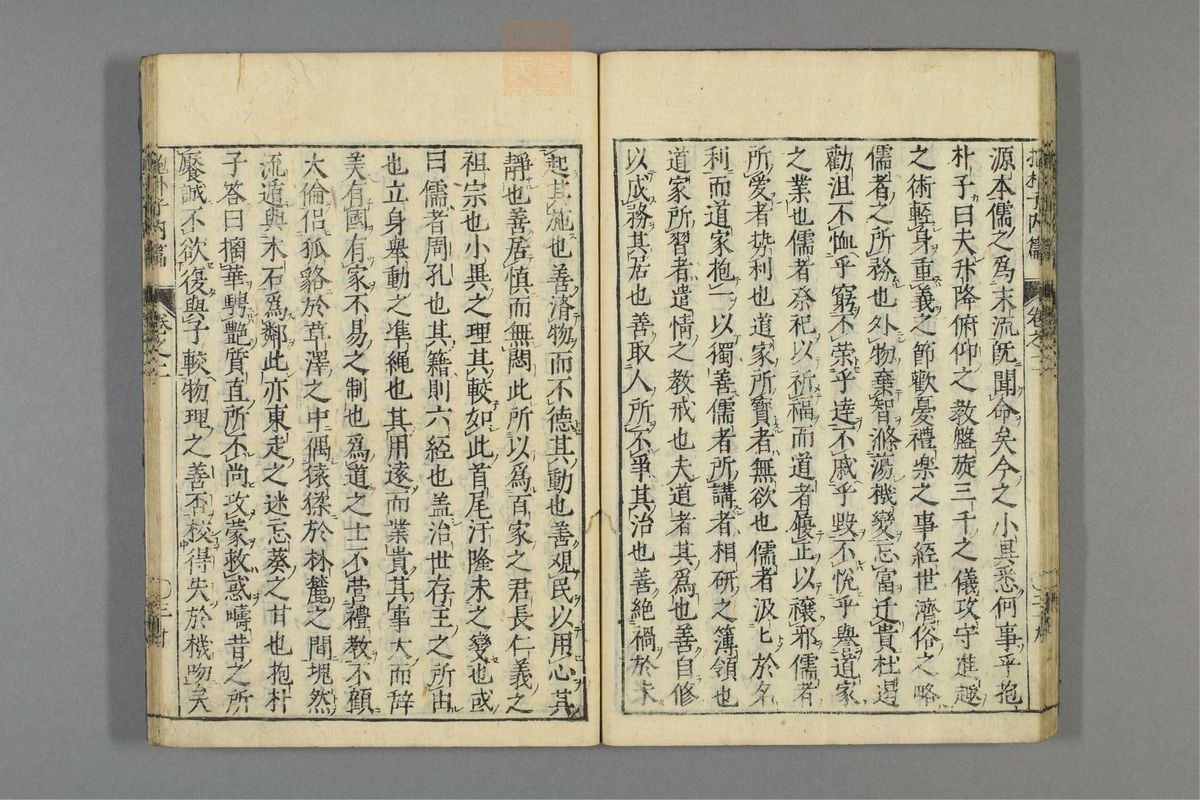 源本儒之爲末流既聞命矣今之小異悉何事乎抱
朴子曰夫升降俯仰之教盤旋三千之儀攻守進趣
之術輕身重義之節歡憂禮樂之事經世濟俗之略
儒者之所務也外物棄智滌蕩機變忘富逸貴杜遏
勸沮不恤乎窮不荣乎達不戚乎毀不悅乎譽道家
之業也儒者祭祀以祈福而道者履正以禳邪儒者
所愛者勢利也道家所寶者無欲也儒者汲匕於名
利而道家抱一以獨善儒者所講者相研之簿領也
道家所習者遣情之教戒也夫道者其爲也善自修
以成務其居也善取人所不爭其治也善絶禍於未
起其施也善濟物而不德其動也善觀民以用心其
靜也善居慎而無悶此所以爲百家之君長仁義之
祖宗也小異之理其較如此首尾汙隆未之變也或
曰儒者周孔也其籍則六經也盖治世存正之所由
也立身舉動之準繩也其用遠而業貴其事大而辭
美有國有家不易之制也爲道之士不營禮教不顧
大倫侣狐貉於草澤之中偶猿猱於林麓之間塊然
流遁與木石爲鄰此亦東走之迷忘葵之甘也抱朴
子答曰摛華騁艷質直所不尚攻蒙救惑疇昔之所
饜誠不欲復與子較物理之善否校得失於機吻矣
抱朴子内篇
卷之二